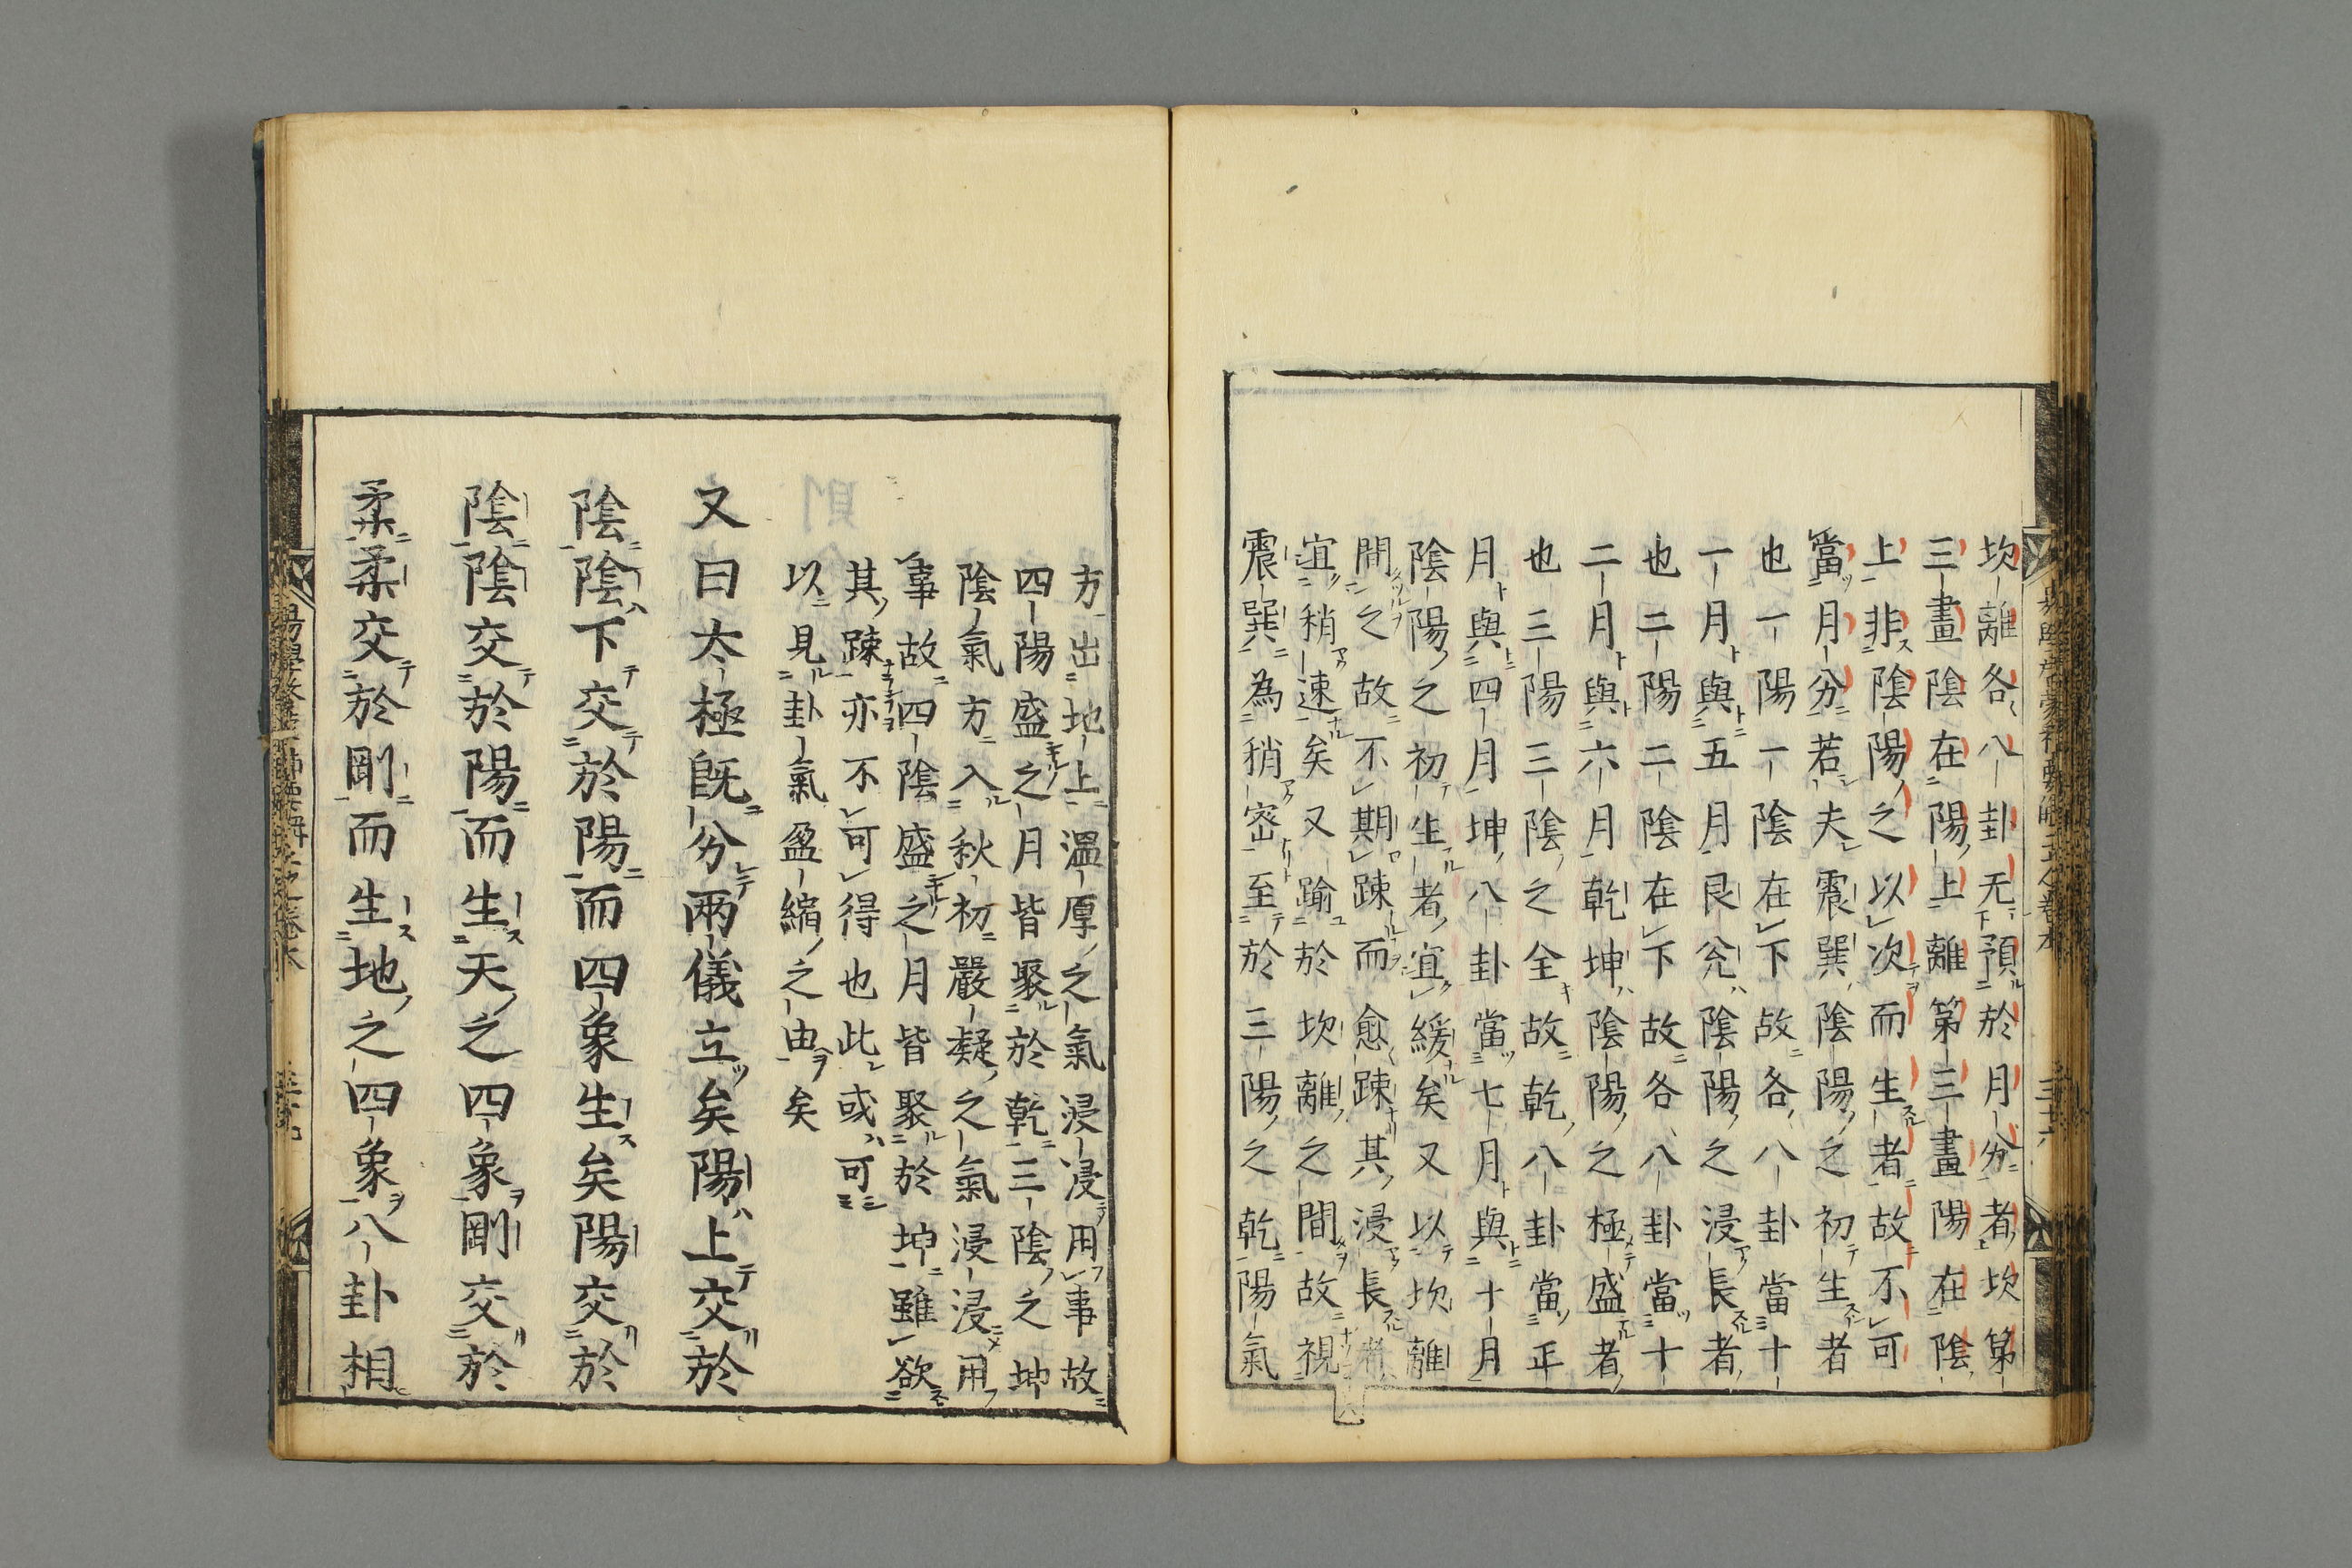 坎離各八卦无預於月分者坎第
三畫陰在陽上離第三畫陽在陰
上非陰陽之以次而生者故不可
當月分若夫震巽陰陽之初生者
也一陽一陰在下故各八卦當十
一月與五月艮兊陰陽之浸長者
也二陽二陰在下故各八卦當十
二月與六月乾坤陰陽之極盛者
也三陽三陰之全故乾八卦當正
月與四月坤八卦當七月與十月
陰陽之初生者宜緩矣又以坎離
間之故不期踈而愈踈其浸長者
宜稍速矣又踰於坎離之間故視
震巽為稍密至於三陽之乾陽氣
方出地上溫厚之氣浸浸用事故
四陽盛之月皆聚於乾三陰之坤
陰氣方入秋初嚴凝之氣浸浸用
事故四陰盛之月皆聚於坤雖欲
其踈亦不可得也此或可
以見卦氣盈縮之由矣
又曰太極旣分兩儀立矣陽上交於
陰陰下交於陽而四象生矣陽交於
陰陰交於陽而生天之四象剛交於
柔柔交於剛而生地之四象八卦相